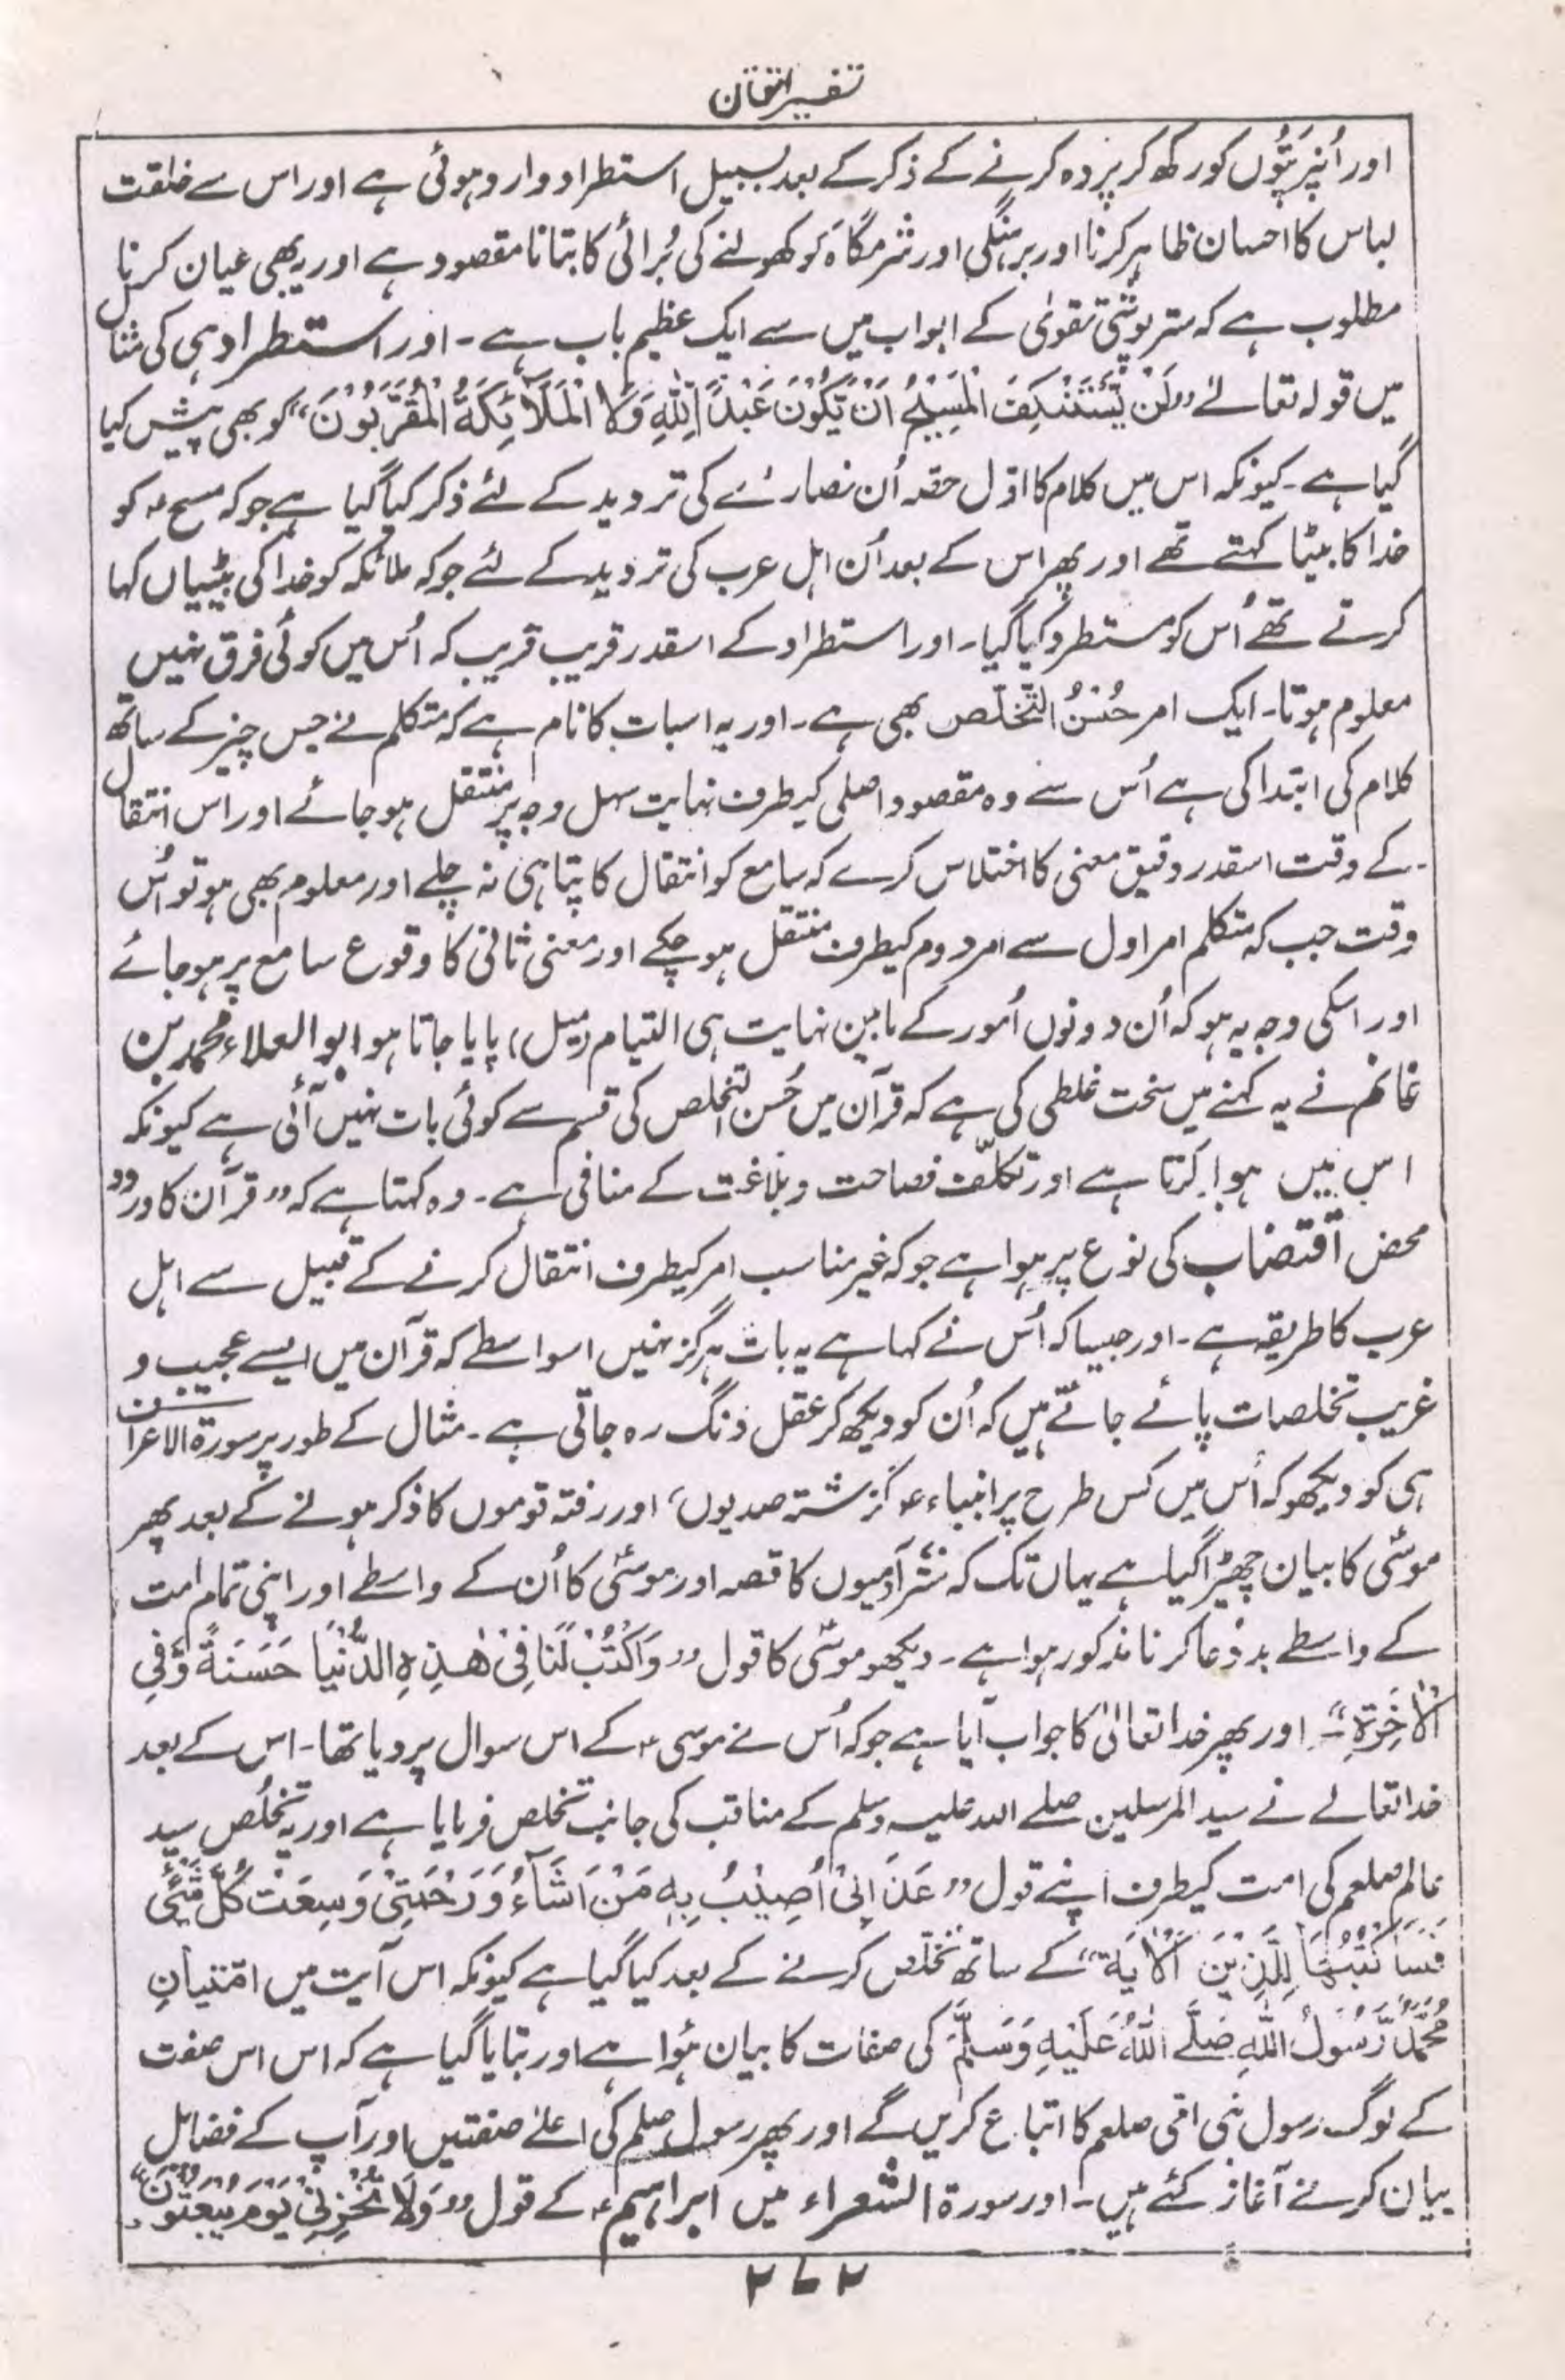 تفسیر اتقان
اور اُنپر پتّوں کو رکھ کر پردہ کرنے کے ذکر کے بعد بسبیل استطراد وارد ہوئی ہے اور اس سے خلقت
لباس کا احسان ظاہر کرنا اور برہنگی اور شرمگاہ کو کھولنے کی بُرائی کا بتانا مقصود ہے اور یہ بھی عیان کرنا
مطلوب ہے کہ ستر پوشی تقویٰ کے ابواب میں سے ایک عظیم باب ہے۔ اور استطراد ہی کی مثال
میں قولہ تعالےٰ ”لَنْ یَّسْتَنْکِفَ الْمَسِیْحُ اَنْ یَّکُوْنَ عَبْدًا لِلّٰہِ وَلَا الْمَلَآئِکَۃُ الْمُقَرَّبُوْنَ“ کو بھی پیش کیا
گیا ہے۔ کیونکہ اس میں کلام کا اوّل حصہ اُن نصارےٰ کی تردید کے لئے ذکر کیا گیا ہے جو کہ مسیح ؑ کو
خدا کا بیٹا کہتے تھے اور پھر اس کے بعد اُن اہل عرب کی تردید کے لئے جو کہ ملائکہ کو خدا کی بیٹیاں کہا
کرتے تھے اُس کو مستطرد کیا گیا۔ اور استطراد کے اسقدر قریب قریب کہ اُس میں کوئی فرق نہیں
معلوم ہوتا۔ ایک امر حُسْنُ التَّخَلّص بھی ہے۔ اور یہ اسبات کا نام ہے کہ متکلم نے جس چیز کے ساتھ
کلام کی ابتدا کی ہے اُس سے وہ مقصود اصلی کیطرف نہایت سہل وجہ پر منتقل ہو جائے اور اس انتقال
کے وقت اسقدر دقیق معنی کا اختلاس کرے کہ سامع کو انتقال کا پتا ہی نہ چلے اور معلوم بھی ہو تو اُس
وقت جب کہ متکلم امر اول سے امر دوم کیطرف منتقل ہو چکے اور معنی ثانی کا وقوع سامع پر ہو جائے
اور اسکی وجہ یہ ہو کہ اُن دونوں اُمور کے مابین نہایت ہی التیام (میل) پایا جاتا ہو ابو العلاء محمد بن
غانم نے یہ کہنے میں سخت غلطی کی ہے کہ قرآن میں حُسن التخلص کی قسم سے کوئی بات نہیں آئی ہے کیونکہ
اس میں ہوا کرتا ہے اور تکلّف فصاحت و بلاغت کے منافی ہے۔ وہ کہتا ہے کہ ”قرآن کا ورود
محض اقتضاب کی نوع پر ہوا ہے جو کہ غیر مناسب امر کیطرف انتقال کرنے کے قبیل سے اہل
عرب کا طریقہ ہے۔ اور جیسا کہ اُس نے کہا ہے یہ بات ہرگز نہیں اسواسطے کہ قرآن میں ایسے عجیب و
غریب تخلصات پائے جاتے ہیں کہ اُن کو دیکھ کر عقل دنگ رہ جاتی ہے۔ مثال کے طور پر سورۃ الاعراف
ہی کو دیکھو کہ اُس میں کس طرح پر انبیاء ؑ گزشتہ صدیوں، اور رفتہ قوموں کا ذکر ہونے کے بعد پھر
موسٰیؑ کا بیان چھیڑا گیا ہے یہاں تک کہ ستّر آدمیوں کا قصہ اور موسٰیؑ کا اُن کے واسطے اور اپنی تمام امت
کے واسطے بد دُعا کرنا مذکور ہوا ہے۔ دیکھو موسٰیؑ کا قول ”وَاکْتُبْ لَنَا فِیْ ھٰذِہِ الدُّنْیَا حَسَنَۃً وَّفِی
الْاٰخِرَۃِ“۔ اور پھر خدا تعالیٰ کا جواب آیا ہے جو کہ اُس نے موسی ؑ کے اس سوال پر دیا تھا۔ اس کے بعد
خدا تعالے نے سید المرسلین صلے اللہ علیہ وسلم کے مناقب کی جانب تخلص فرمایا ہے اور یہ تخلُص سید
عالم صلعم کی امت کیطرف اپنے قول ”عَذَابِیْ اُصِیْبُ بِہٖ مَنْ اَشَآءُ وَرَحْمَتِیْ وَسِعَتْ کُلَّ شَیْءٍ
فَسَاَکْتُبُہَا لِلَّذِیْنَ اَلْاٰیَۃ“ کے ساتھ تخلّص کرنے کے بعد کیا گیا ہے کیونکہ اس آیت میں امتیانِ
مُحَمَّدٌ رَّسُوْلُ اللّٰہِ صَلَّے اللّٰہُ عَلَیْہِ وَسَلَّمَ کی صفات کا بیان ہُوا ہے اور بتایا گیا ہے کہ اس اس صفت
کے لوگ رسول نبی امّی صلعم کا اتباع کریں گے اور پھر رسول صلعم کی اعلےٰ صفتیں اور آپ کے فضائل
بیان کرنے آغاز کئے ہیں۔ اور سورۃ الشعراء میں ابراہیم ؑ کے قول ”وَلَا تُخْزِنِیْ یَوْمَ یُبْعَثُوْنَ“
۲۷۲